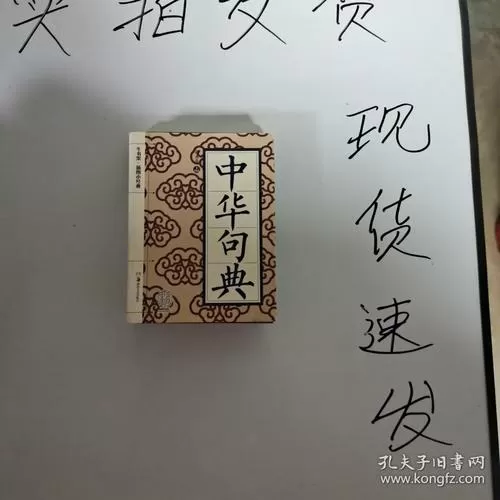 实拍发货
现货速发
中华句典
孔夫子旧书网
www.kongfz.com